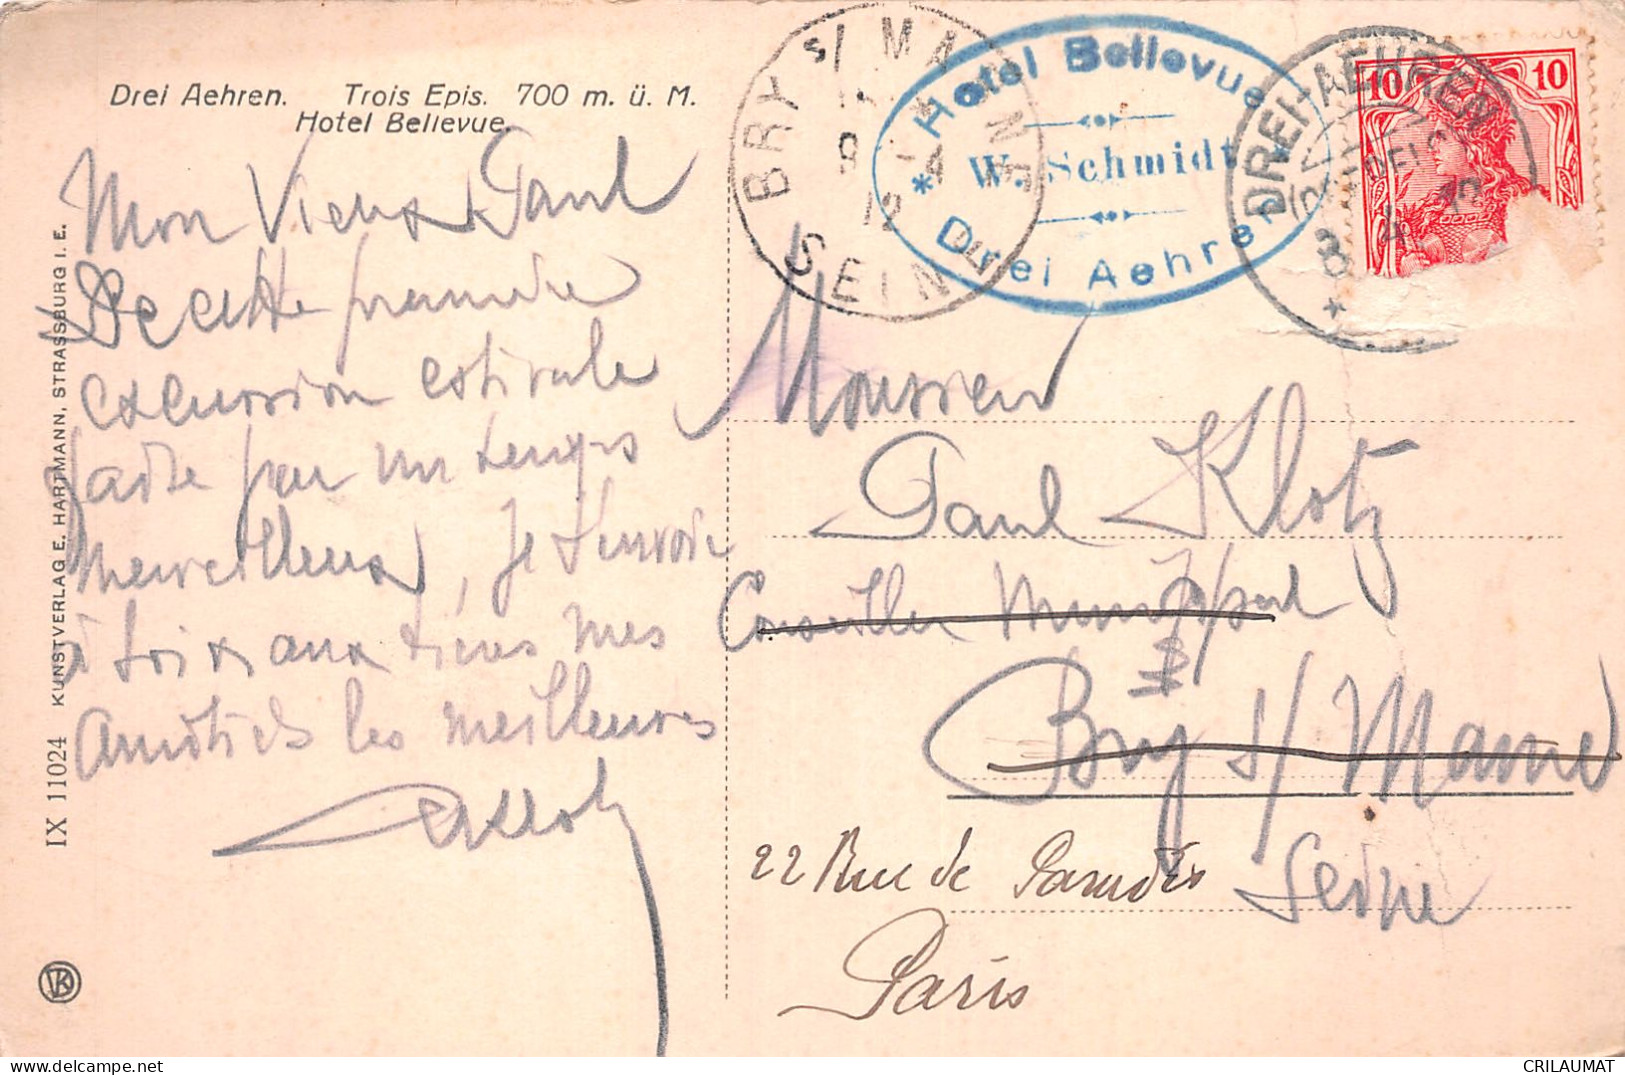 Drei Aehren. Trois Epis. 700 m. ü. M.
Hotel Bellevue.
Mon Vieux Paul
De cette première
excursion estivale
faite par un temps
merveilleux, je t'envoie
à toi et aux tiens mes
amitiés les meilleures
KUNSTVERLAG E. HARTMANN, STRASSBURG I. E.
IX 11024
BRY s/ MARNE
8 4
12
SEINE
Hotel Bellevue
W. Schmidt
Drei Aehren
DREI-AEHREN
8 4 12
10 10
Monsieur
Paul Klotz
Conseiller Municipal
Bry s/ Marne
Seine
22 Rue de Paradis
Paris
CRILAUMAT